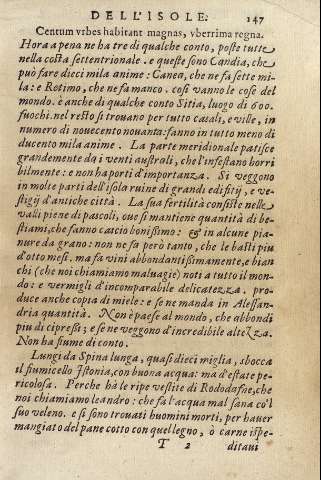 DELL'ISOLE. 147
Centum vrbes habitant magnas, vberrima regna.
Hora a pena ne ha tre di qualche conto, poste tutte
nella costa settentrionale. e queste sono Candia, che
può fare dieci mila anime: Canea, che ne fa sette mi-
la: e Retimo, che ne fa manco. così vanno le cose del
mondo. è anche di qualche conto Sitia, luogo di 600.
fuochi. nel resto si trouano per tutto casali, e ville, in
numero di nouecento nouanta: fanno in tutto meno di
ducento mila anime. La parte meridionale patisce
grandemente da i venti australi, che l'infestano horri
bilmente: e non ha porti d'importanza. Si veggono
in molte parti dell'isola ruine di grandi edifitij, e ve-
stigij d'antiche città. La sua fertilità consiste nelle
valli piene di pascoli, oue si mantiene quantità di be-
stiami, che fanno cascio bonissimo: & in alcune pia-
nure da grano: non ne fa però tanto, che le basti piu
d'otto mesi. ma fa vini abbondantissimamente, e bian
chi (che noi chiamiamo maluagie) noti a tutto il mon-
do: e vermigli d'incomparabile delicatezza. pro-
duce anche copia di miele: e se ne manda in Alessan-
dria quantità. Non è paese al mondo, che abbondi
piu di cipressi; e se ne veggono d'incredibile altezza.
Non ha fiume di conto.
Lungi da Spina lunga, quasi dieci miglia, sbocca
il fiumicello Istonia, con buona acqua: ma d'estate pe-
ricolosa. Perche hà le ripe vestite di Rododafne, che
noi chiamiamo leandro: che fa l'acqua mal sana co'l
suo veleno. e si sono trouati huomini morti, per hauer
mangiato del pane cotto con quel legno, ò carne ispe-
T 2 ditaui